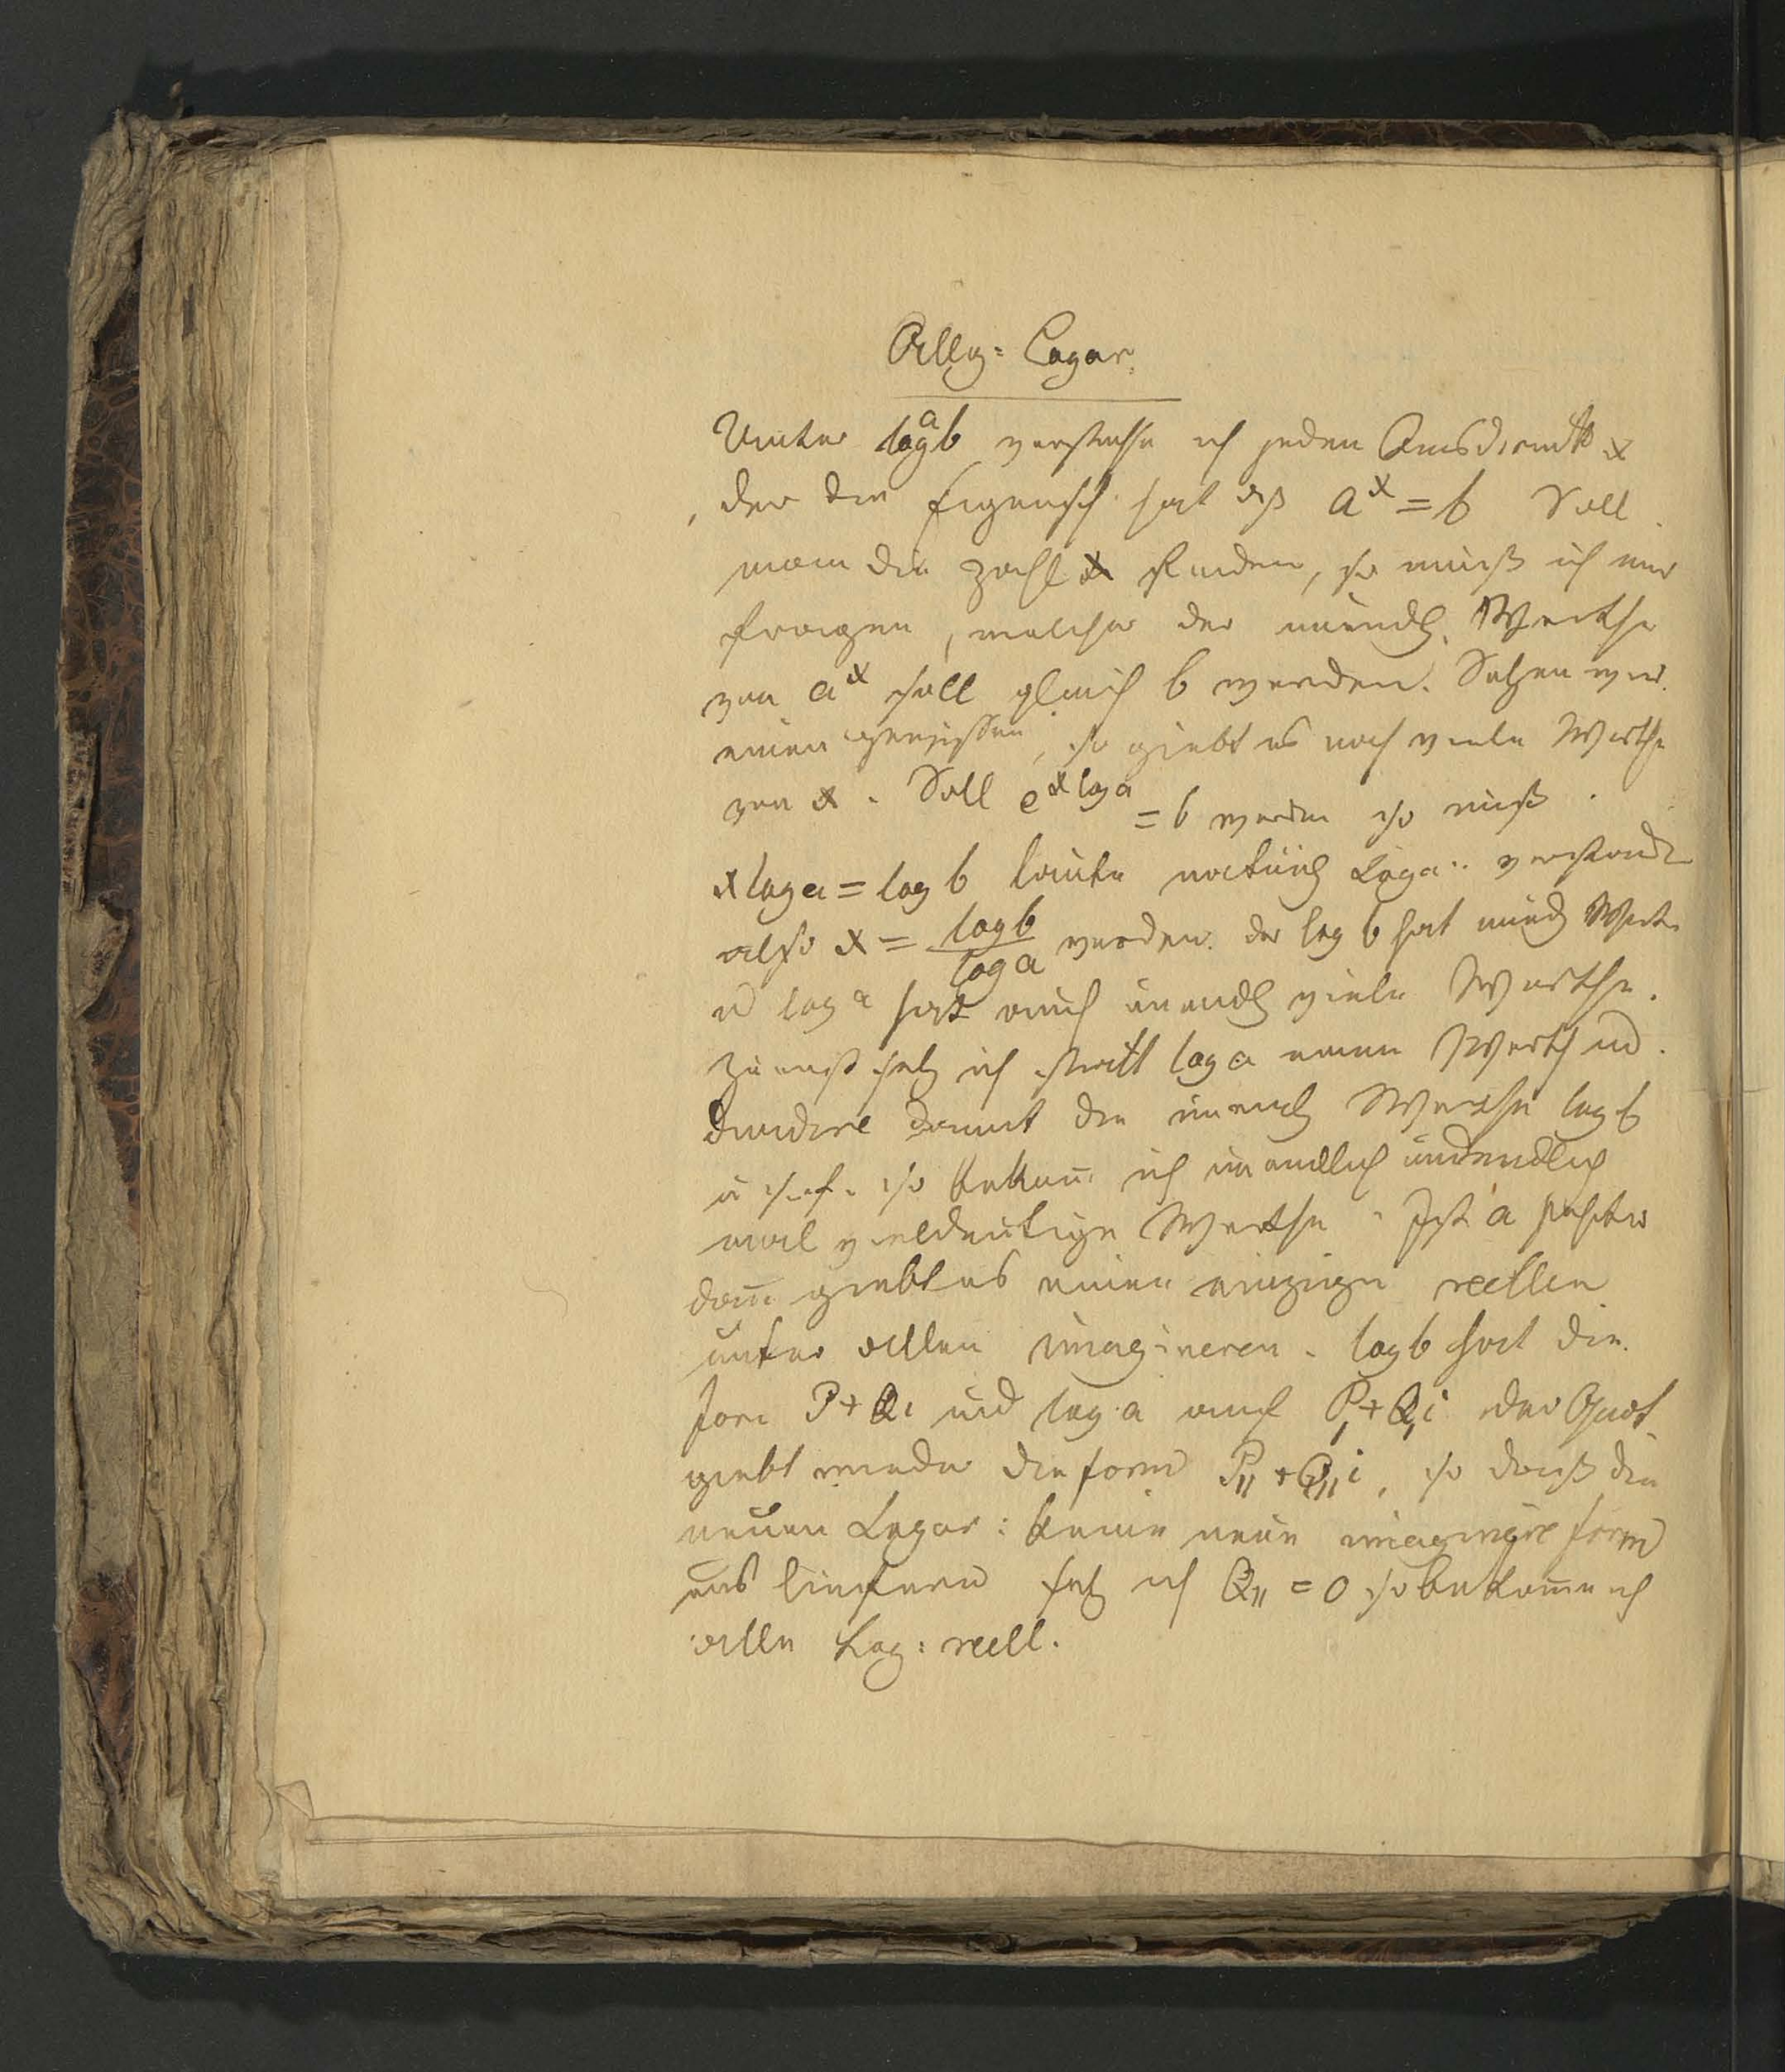 Allg: Logar:
Unter log^a b verstehe ich jeden Ausdruck x
, der die Eigensch hat dß a^x = b Soll
man die Zahl x finden, so muß ich mir
fragen, welcher der unendl. Werthe
von a^x soll gleich b werden. Setzen wir
einen gewissen, so giebt es noch viele Werthe
von x. Soll e^{x log a} = b werden so muß
x log a = log b lauter natürl Loga: verstand
also x = log b / log a werden. der log b hat unendl Werte
u log a hat auch unendl viele Werthe.
Zuerst setz ich statt log a einen Werth ud.
dividire damit die unendl Werthe log b
u s. f. so bekom̄ ich unendlich undendlich
mal vieldeutige Werthe. Ist a positiv
dan̄ giebt es einen einzigen reellen
unter allen imagineren. log b hat die
Form P + Qi und log a auch P, + Q,i der Quot
giebt wieder die form P,, + Q,,i, so daß die
neuen Logar: keine neue imaginäre form
uns liefern setz ich Q,, = 0 so bekom̄e ich
alle Log: reell.